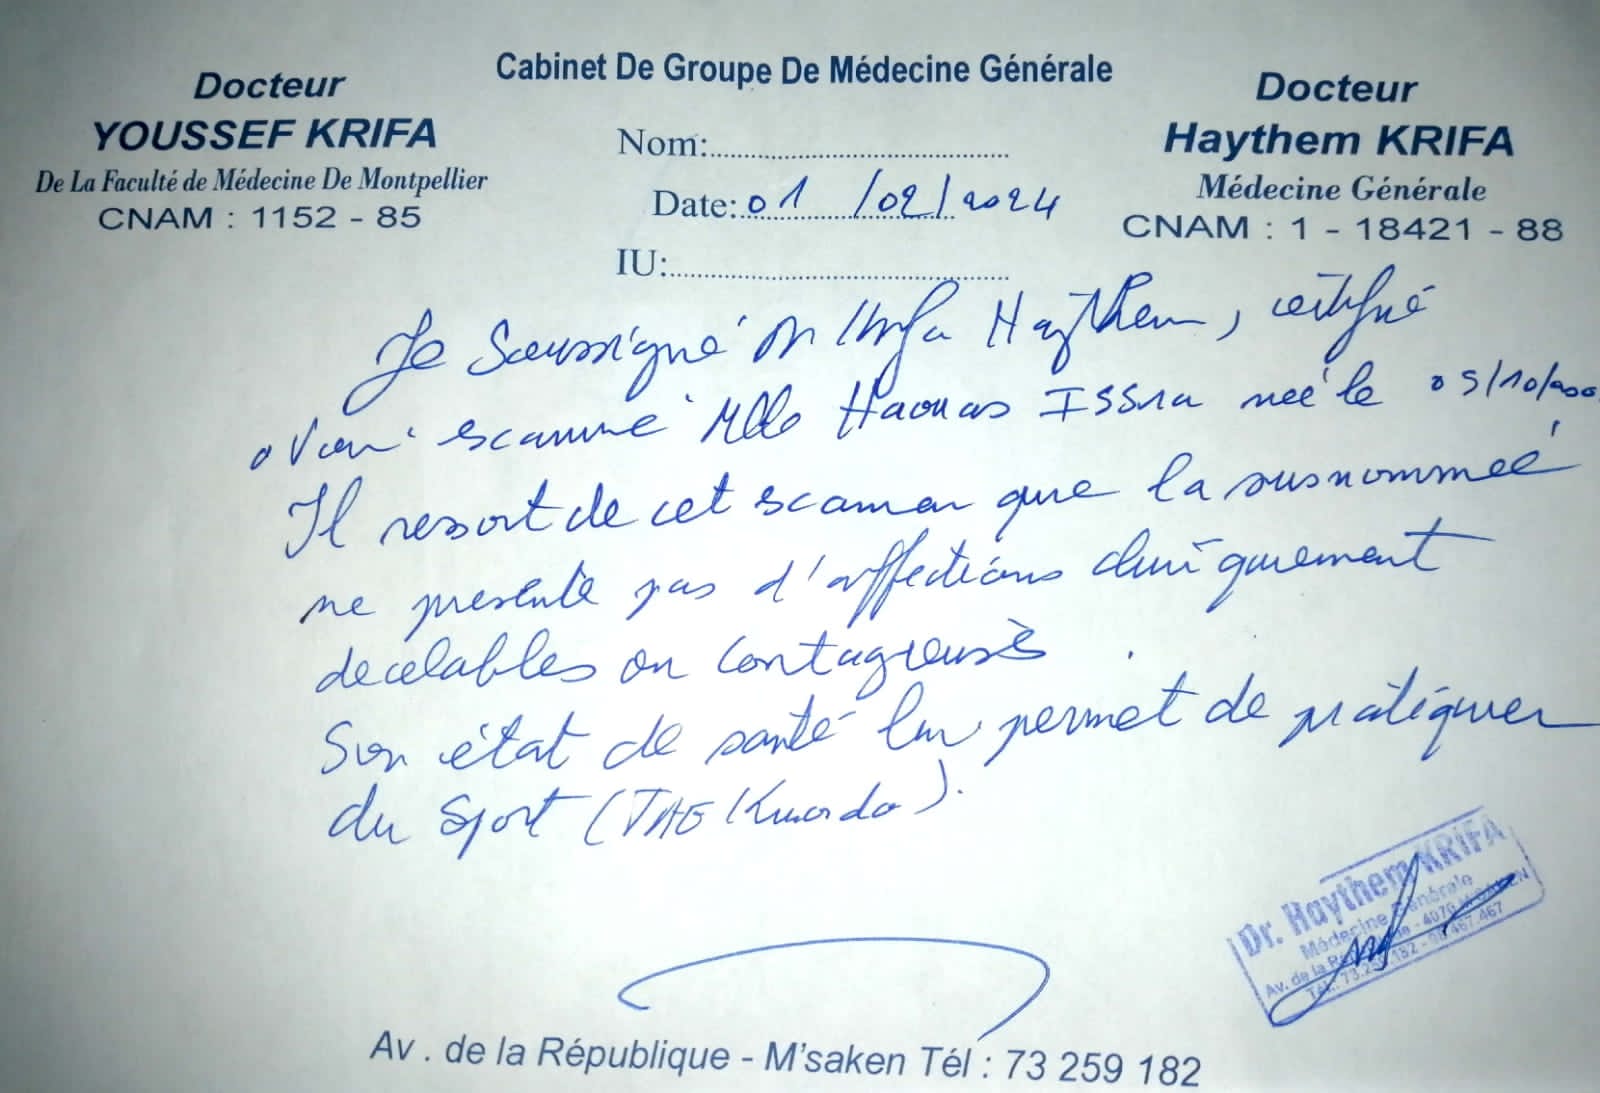 Cabinet De Groupe De Médecine Générale
Docteur
YOUSSEF KRIFA
De La Faculté de Médecine De Montpellier
CNAM : 1152 - 85
Nom:
Date: 01 /02/2024
IU:
Docteur
Haythem KRIFA
Médecine Générale
CNAM : 1 - 18421 - 88
Je Soussigné Dr Krifa Haythem, certifié
avoir examiné Mlle Haouas Issra neé le 05/10/200
Il ressort de cet examen que la susnommeé
ne présente pas d'affections cliniquement
decelables ou contagieuses.
Son état de santé lui permet de pratiquer
du Sport (TAEKwondo).
Dr. Haythem KRIFA
Médecine Générale
Av. de la République - 4070 M'SAKEN
Tél.: 73.259.182 - 467.467
Av . de la République - M'saken Tél : 73 259 182